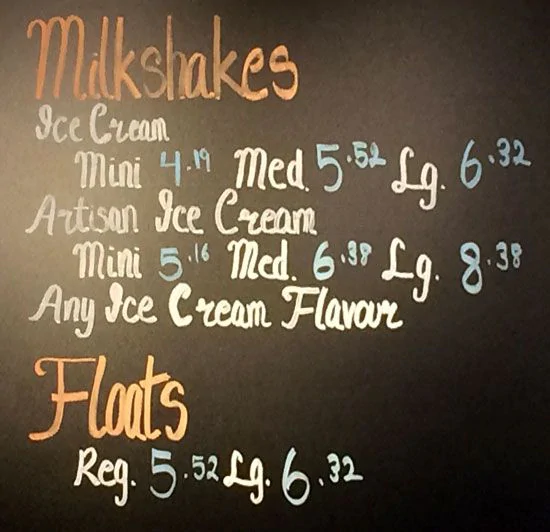 Milkshakes
Ice Cream
Mini 4.19 Med. 5.52 Lg. 6.32
Artisan Ice Cream
Mini 5.16 Med. 6.38 Lg. 8.38
Any Ice Cream Flavour
Floats
Reg. 5.52 Lg. 6.32